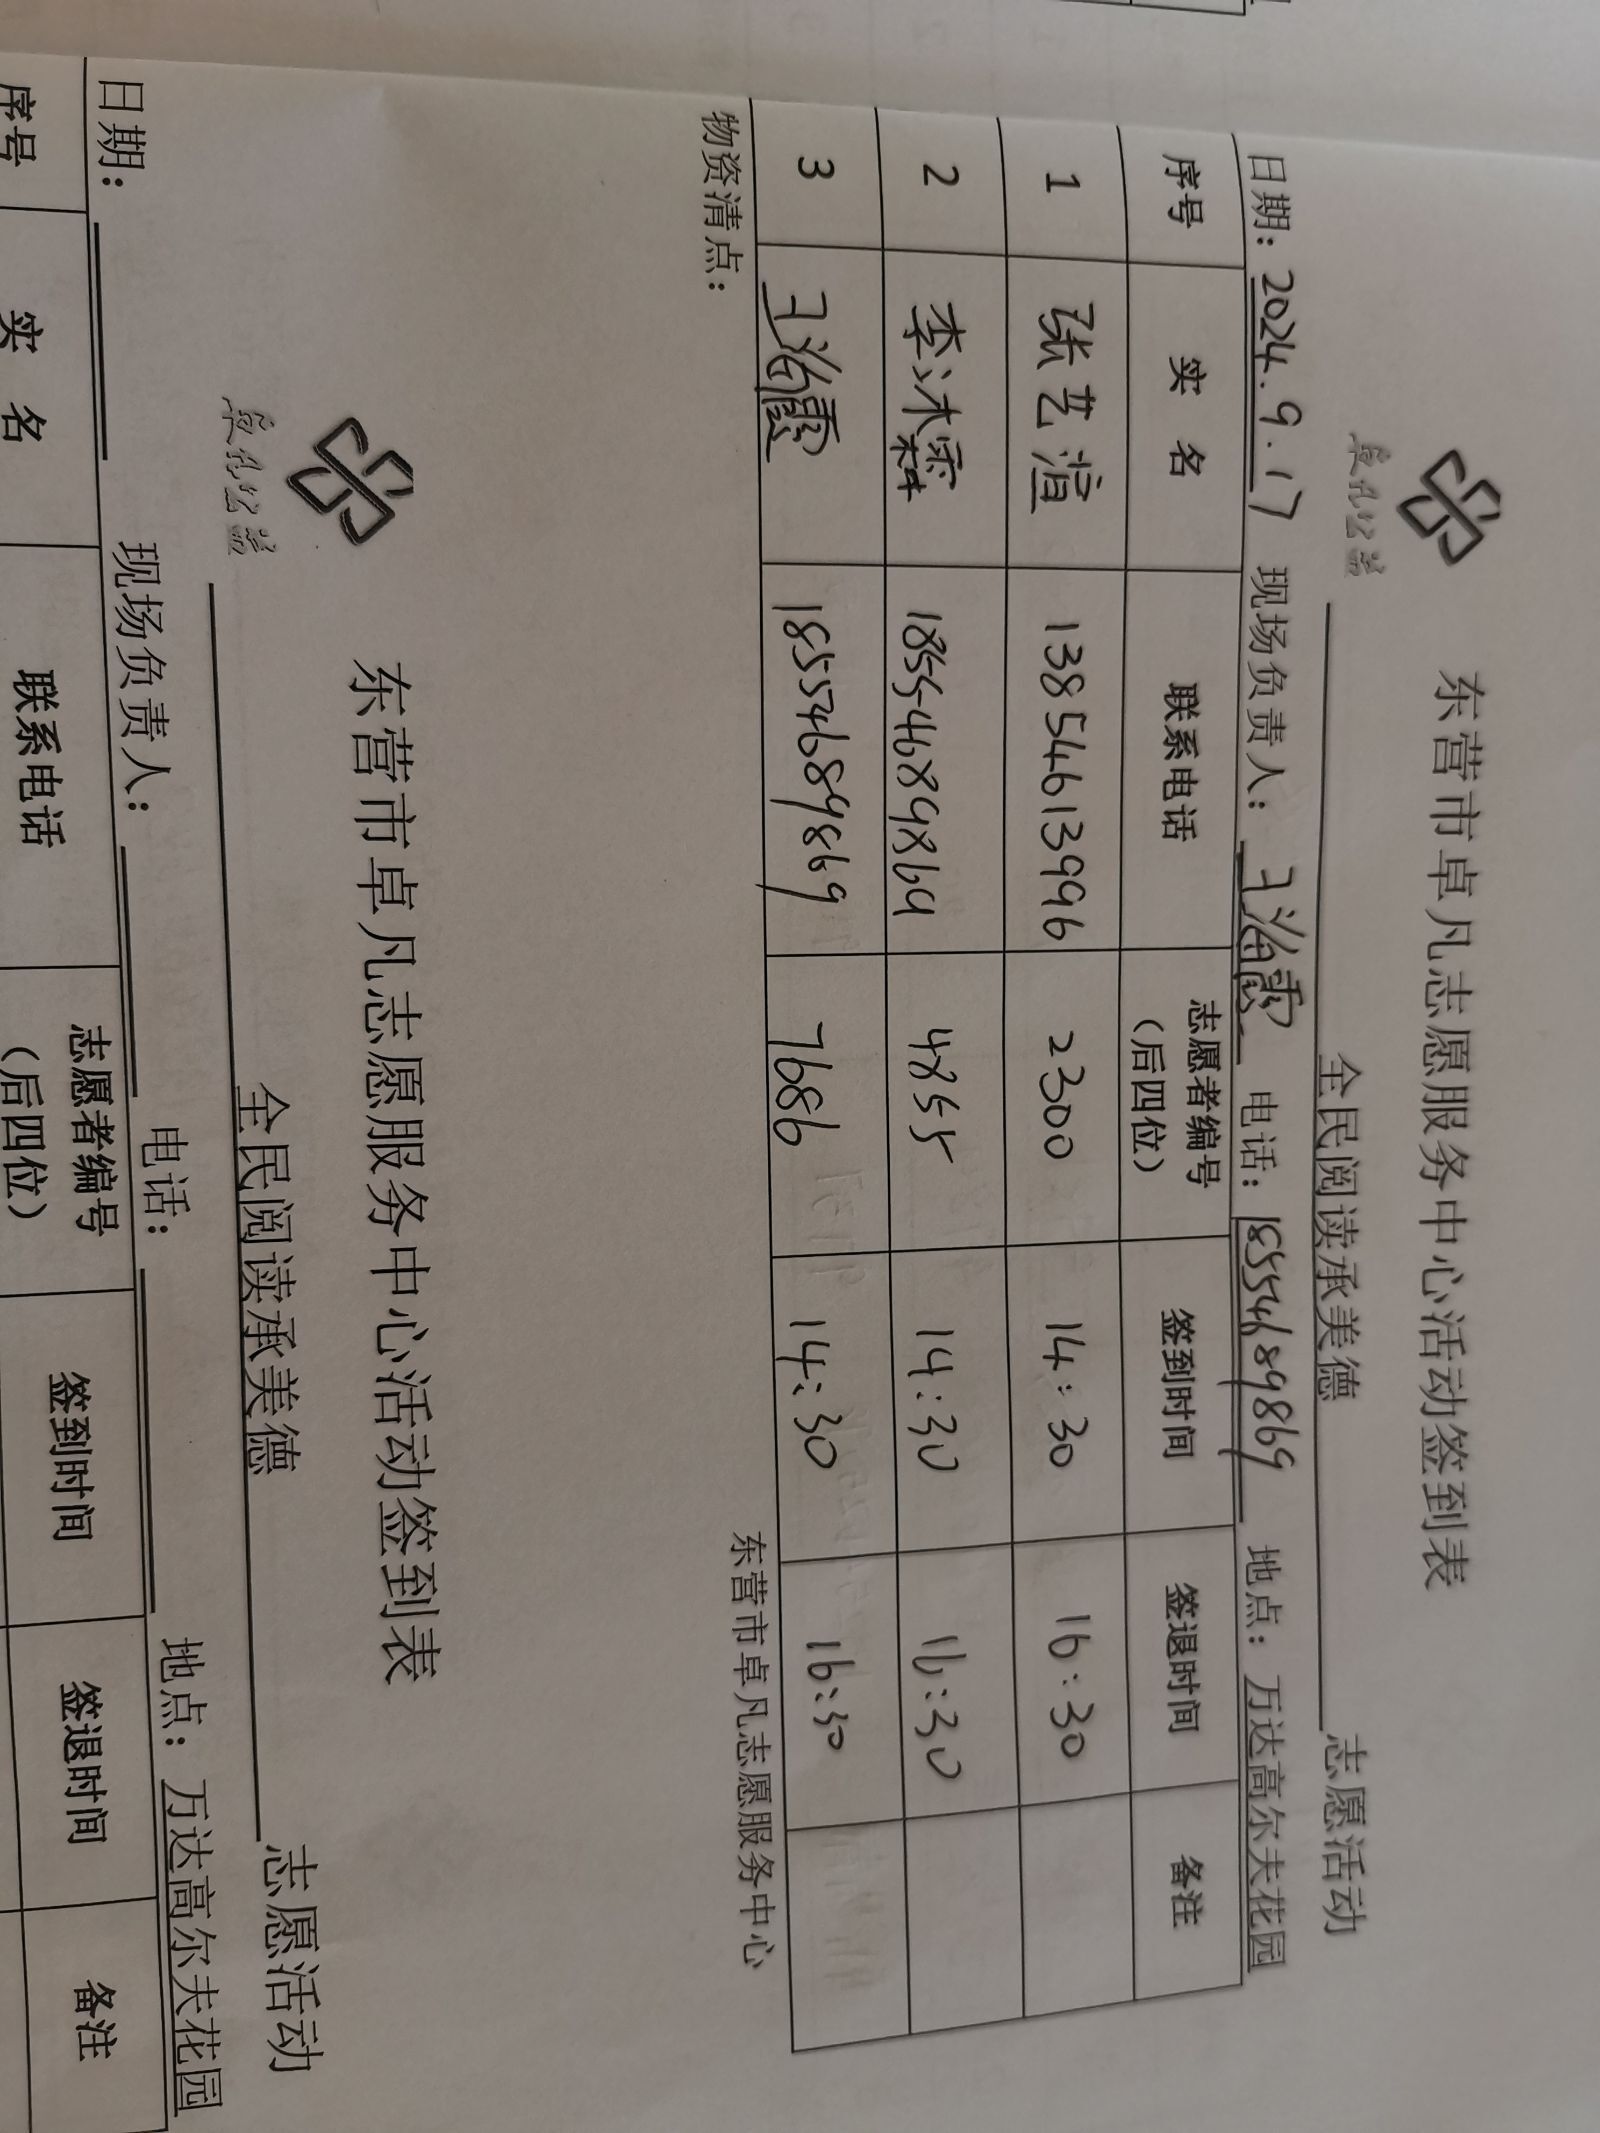 卓凡公益
东营市卓凡志愿服务中心活动签到表
全民阅读承美德 志愿活动
日期：2024.9.17 现场负责人：王海霞 电话：18554689869 地点：万达高尔夫花园
序号 实 名 联系电话 志愿者编号（后四位） 签到时间 签退时间 备注
1 张艺渲 13854613996 2300 14:30 16:30
2 李沐霖 18554689869 4855 14:30 16:30
3 王海霞 18554689869 7686 14:30 16:30
物资清点： 东营市卓凡志愿服务中心
卓凡公益
东营市卓凡志愿服务中心活动签到表
全民阅读承美德 志愿活动
日期： 现场负责人： 电话： 地点：万达高尔夫花园
序号 实 名 联系电话 志愿者编号（后四位） 签到时间 签退时间 备注